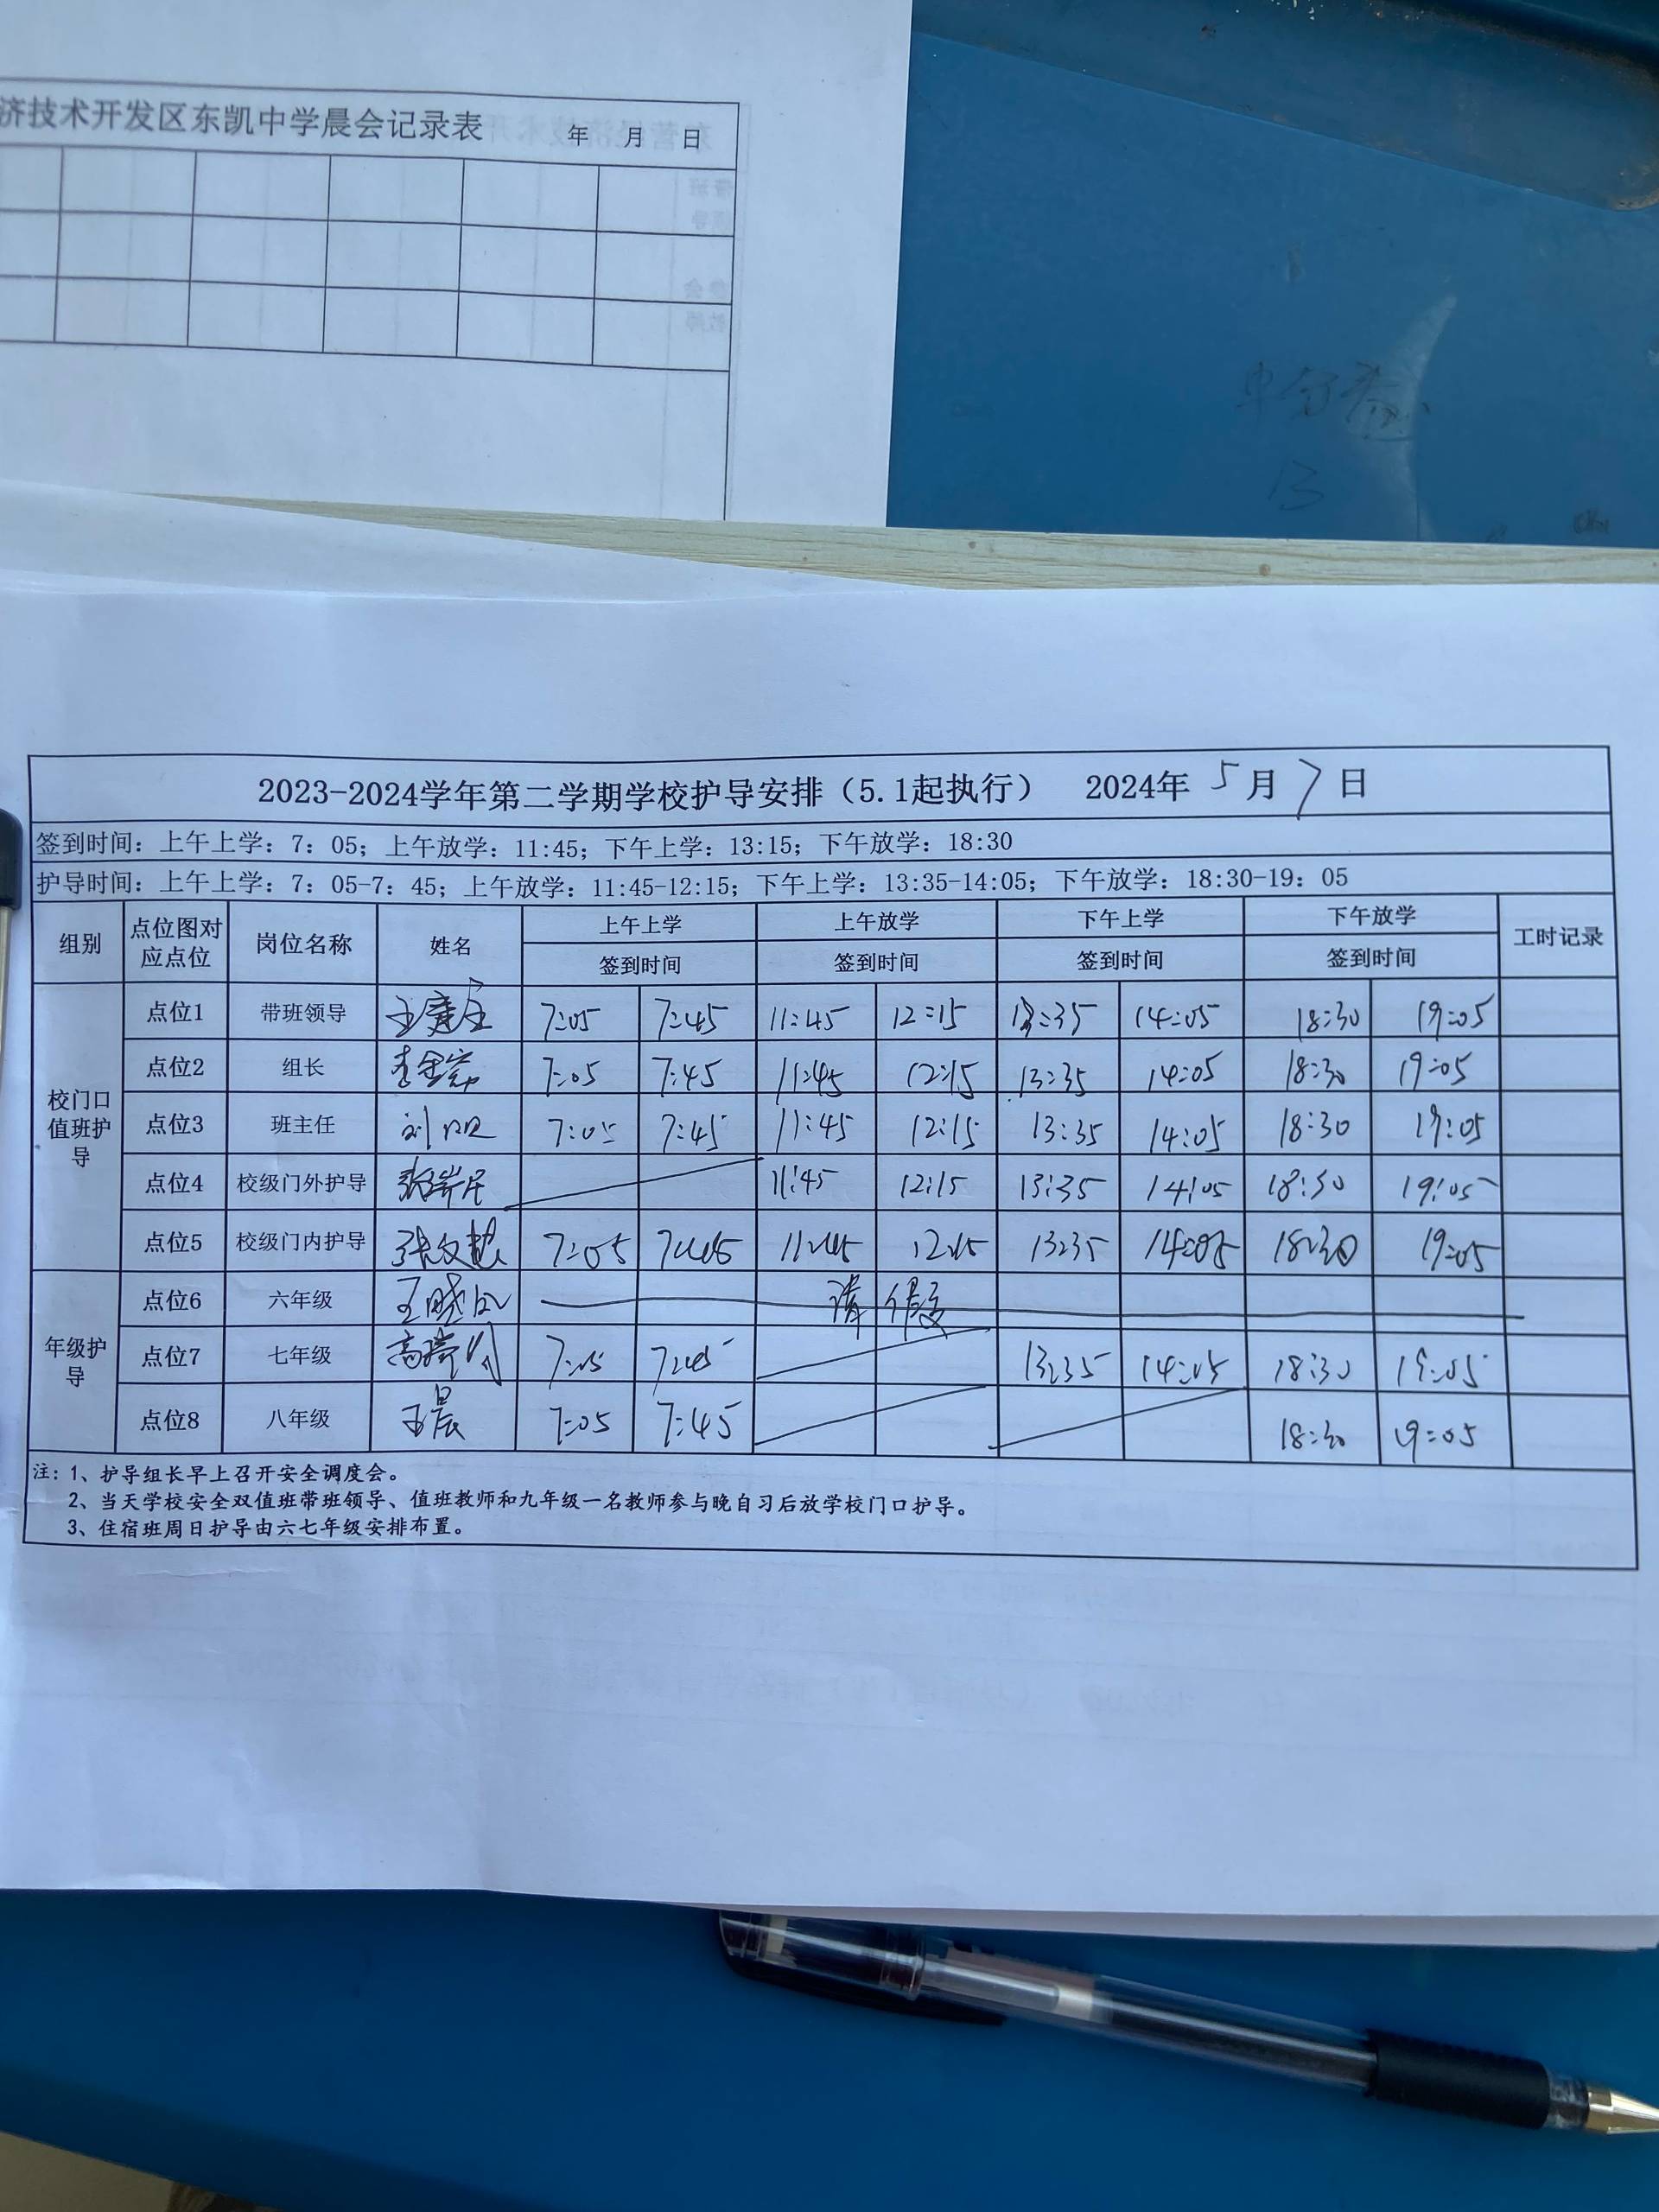 济技术开发区东凯中学晨会记录表 年 月 日
2023-2024学年第二学期学校护导安排（5.1起执行） 2024年 5月 7日
签到时间：上午上学：7：05；上午放学：11:45；下午上学：13:15；下午放学：18:30
护导时间：上午上学：7：05-7：45；上午放学：11:45-12:15；下午上学：13:35-14:05；下午放学：18:30-19：05
组别 点位图对应点位 岗位名称 姓名 上午上学 上午放学 下午上学 下午放学 工时记录
签到时间 签到时间 签到时间 签到时间
校门口值班护导
点位1 带班领导 7:05 7:45 11:45 12:15 13:35 14:05 18:30 19:05
点位2 组长 7:05 7:45 11:45 12:15 13:35 14:05 18:30 19:05
点位3 班主任 7:05 7:45 11:45 12:15 13:35 14:05 18:30 19:05
点位4 校级门外护导 11:45 12:15 13:35 14:05 18:30 19:05
点位5 校级门内护导 7:05 7:45 11:45 12:15 13:35 14:05 18:30 19:05
年级护导
点位6 六年级 请假
点位7 七年级 7:05 7:45 13:35 14:05 18:30 19:05
点位8 八年级 王晨 7:05 7:45 18:30 19:05
注：1、护导组长早上召开安全调度会。
2、当天学校安全双值班带班领导、值班教师和九年级一名教师参与晚自习后放学校门口护导。
3、住宿班周日护导由六七年级安排布置。